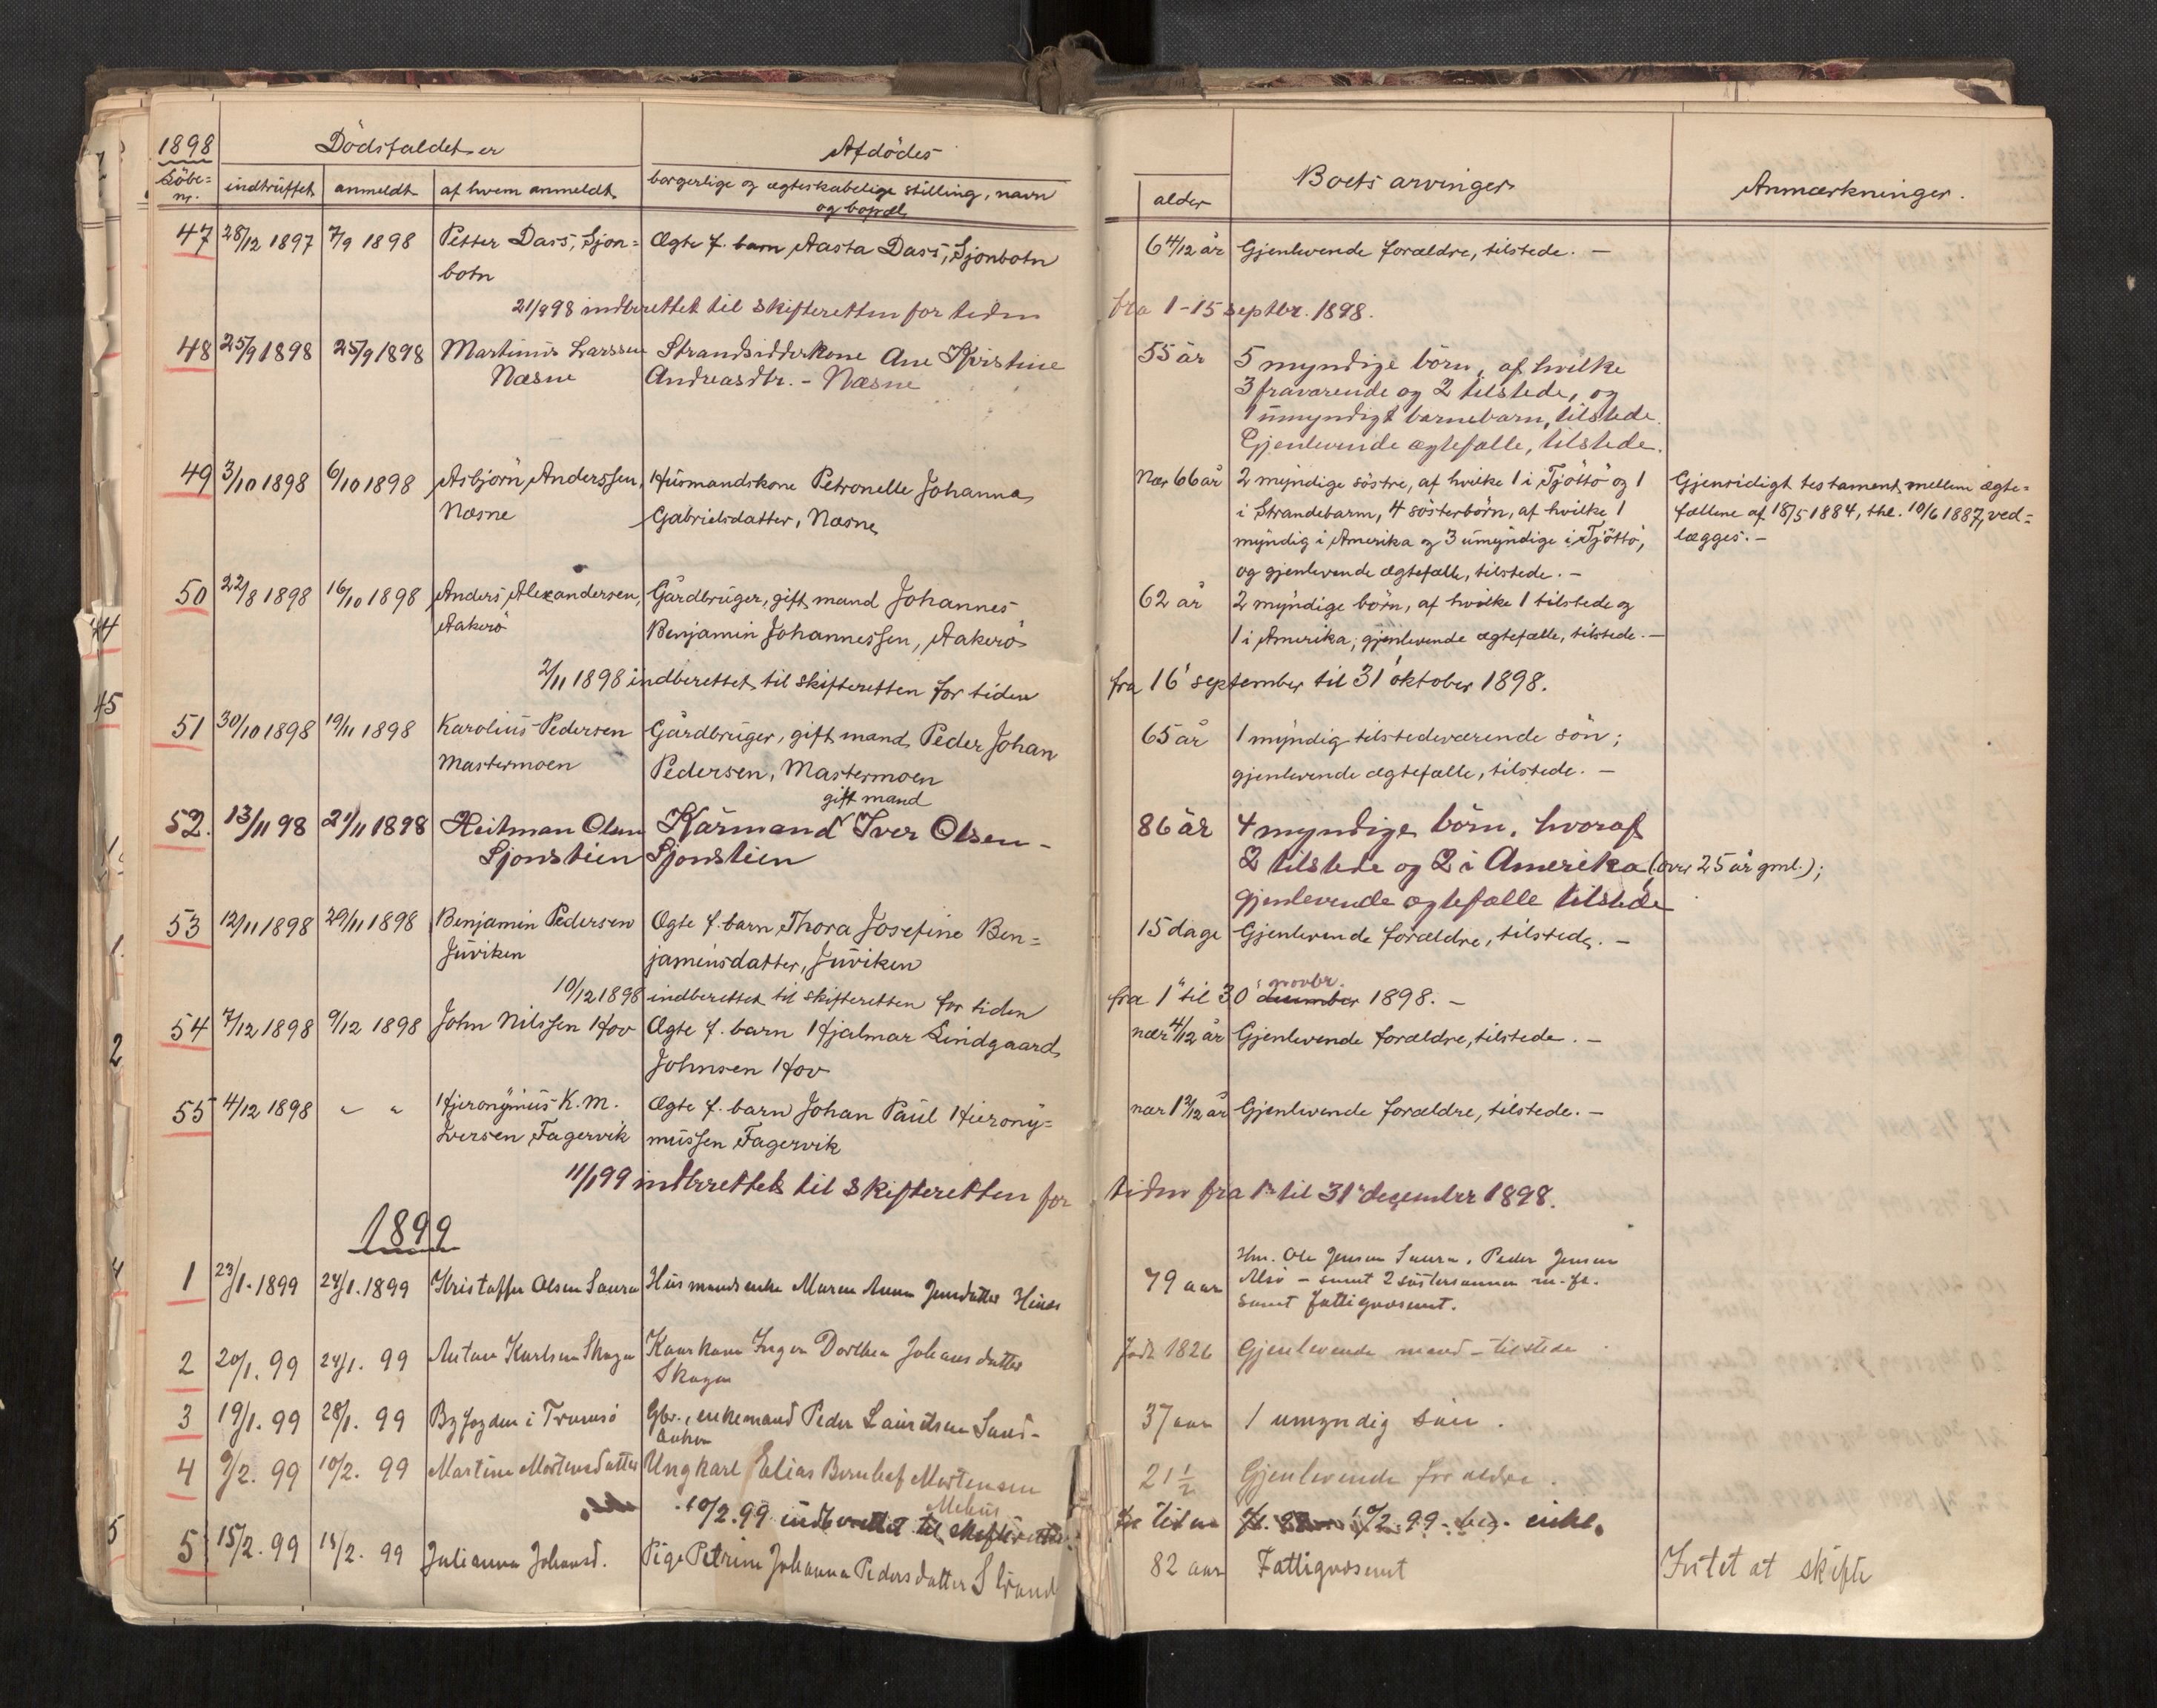 1898
Dödsfaldet er
Afdödes
Löbe-
nr.
indtruffet
anmeldt
af hvem anmeldt
borgerlige og ægteskabelige stilling, navn
og bopæl
alder
Boets arvinger
Anmærkninger.
47 28/12 1897 7/9 1898 Petter Dass, Sjon= Ægte f. barn Aasta Dass, Sjonbotn 6 4/12 år Gjenlevende forældre, tilstede. —
botn
21/9 98 indberettet til skifteretten for tiden fra 1-15 septbr. 1898.
48 25/9 1898 25/9 1898 Martinus Larssen Strandsidderkone Ane Kristine 55 år 5 myndige börn, af hvilke
Næsne Andreasdtr. - Næsne 3 fraværende og 2 tilstede, og
1 umyndigt barnebarn, tilstede.
Gjenlevende ægtefælle, tilstede.
49 3/10 1898 6/10 1898 Asbjörn Anderssen, Husmandskone Petronelle Johanna Nær 66 år 2 myndige söstre, af hvilke 1 i Tjöttö og 1 Gjensidigt testament mellem ægte=
Næsne Gabrielsdatter, Næsne i Strandebarm, 4 sösterbörn, af hvilke 1 fællene af 18/5 1884, thl. 10/6 1887, ved=
myndig i Amerika og 3 umyndige i Tjöttö, lægges. —
og gjenlevende ægtefælle, tilstede. —
50 22/8 1898 16/10 1898 Anders Alexandersen, Gårdbruger, gift mand Johannes 62 år 2 myndige börn, af hvilke 1 tilstede og
Aakerö Benjamin Johannessen, Aakerö 1 i Amerika; gjenlevende ægtefælle, tilstede. —
2/11 1898 indberettet til skifteretten for tiden fra 16' september til 31' oktober 1898.
51 30/10 1898 19/11 1898 Karolius Pedersen Gårdbruger, gift mand Peder Johan 65 år 1 myndig tilstedeværende sön;
Mastermoen Pedersen, Mastermoen gjenlevende ægtefælle, tilstede. —
gift mand
52. 13/11 98 21/11 1898 Heitman Olsen Kårmand Iver Olsen - 86 år 4 myndige börn, hvoraf
Sjonstien Sjonstien 2 tilstede og 2 i Amerika (over 25 år gml.);
gjenlevende ægtefælle tilstede
53 12/11 1898 29/11 1898 Benjamin Pedersen Ægte f. barn Thora Josefine Ben= 15 dage Gjenlevende forældre, tilstede. —
Juviken jaminsdatter, Juviken
novbr.
10/12 1898 indberettet til skifteretten for tiden fra 1' til 30' december 1898. —
54 7/12 1898 9/12 1898 John Nilssen Hov Ægte f. barn Hjalmar Lindgaard nær 4/12 år Gjenlevende forældre, tilstede. —
Johnsen Hov
55 4/12 1898 " " Hjeronymus K. M. Ægte f. barn Johan Paul Hierony= Gjenlevende forældre, tilstede. —
Iversen Fagervik mussen Fagervik
11/1 99 indberettet til skifteretten for tiden fra 1' til 31' december 1898.
1899
Hm. Ole Jensen Saura, Peder Jensen
1 23/1. 1899 24/1. 1899 Kristoffer Olsen Saura Husmandsenke Maren Anna Jensdatter 79 aar Alsö - samt 2 söstersönner
samt Fattigvæsenet.
2 20/1. 99 24/1. 99 Anton Karlsen Skagen Kaarkone Inger Dorthea Johansdatter Födt 1826 Gjenlevende mand - tilstede
Skagen
3 19/1. 99 28/1. 99 Byfogden i Tromsö Gbr., enkemand Peder Lauritsen Sand- 37 aar 1 umyndig sön.
4 9/2. 99 10/2. 99 Martine Mortensdatter Ungkarl Elias Bernhof Mortensen 21 1/2 Gjenlevende forældre.
10/2. 99 indberettet til skifteretten 10/2 99
5 15/2. 99 18/2. 99 Julianna Johansd. Pige Petrine Johanna Pedersdatter Strand 82 aar Fattigvæsenet Intet at skifte